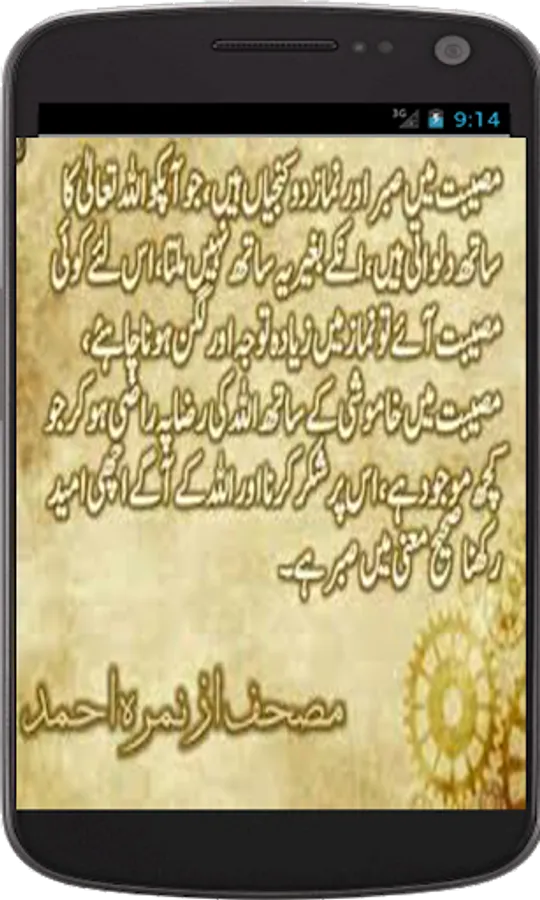 3G 9:14
مصیبت میں صبر اور نماز دو کنجیاں ہیں، جو آپکو اللہ تعالیٰ کا
ساتھ دلواتی ہیں، انکے بغیر یہ ساتھ نہیں ملتا، اس لئے کوئی
مصیبت آئے تو نماز میں زیادہ توجہ اور لگن ہونا چاہئے،
مصیبت میں خاموشی کے ساتھ اللہ کی رضا پہ راضی ہو کر جو
کچھ موجود ہے، اس پر شکر کرنا اور اللہ کے آگے اچھی امید
رکھنا صحیح معنی میں صبر ہے۔
مصحف از نمرہ احمد